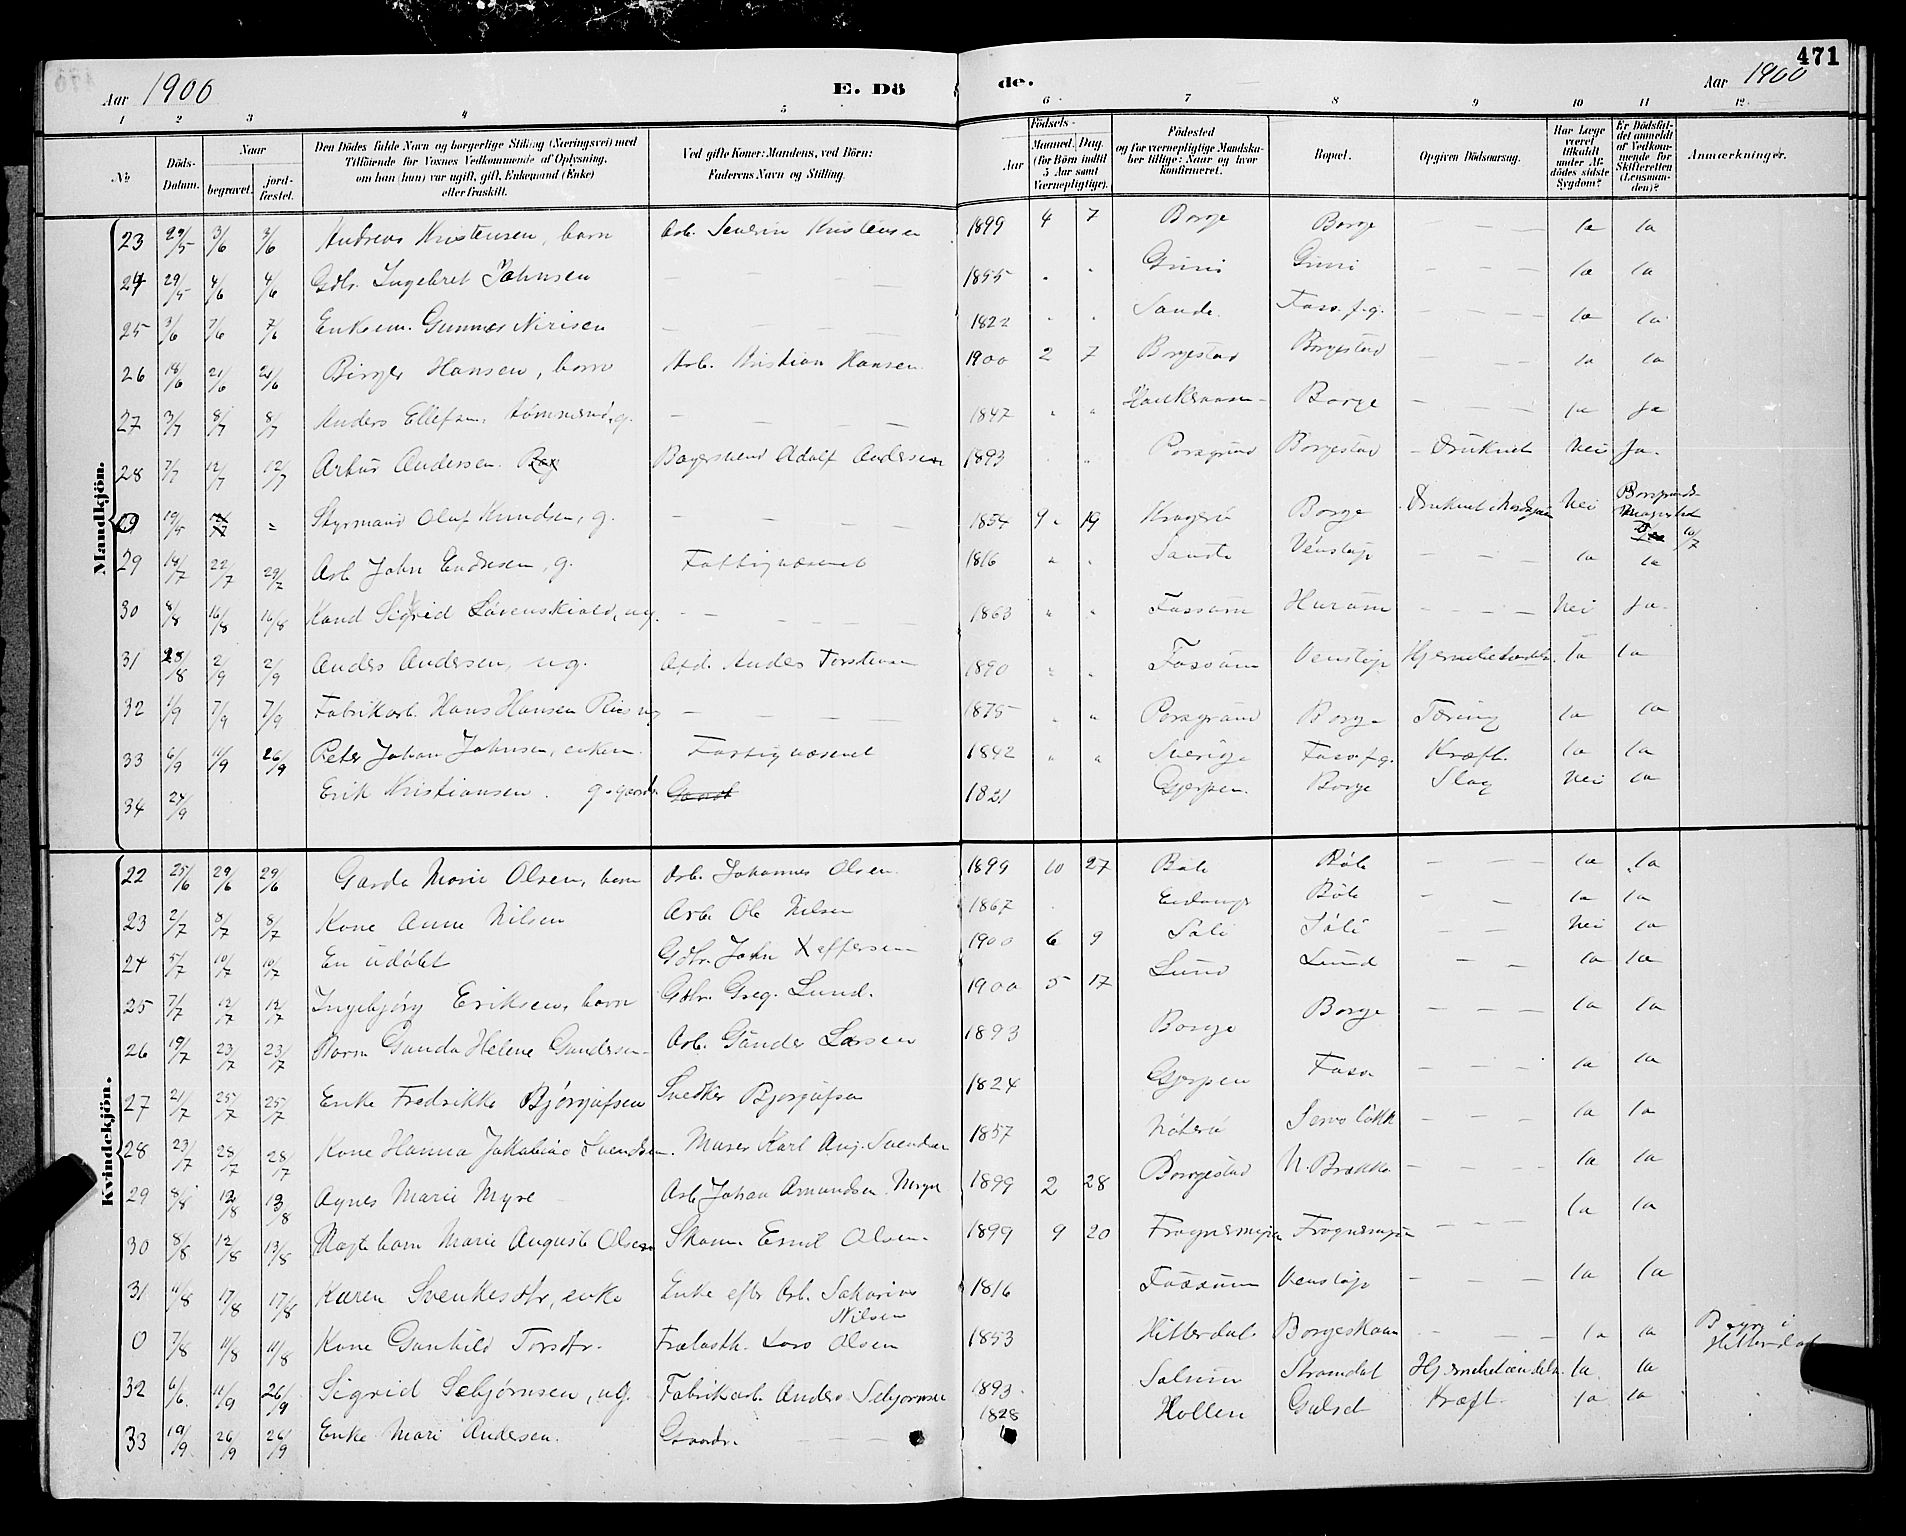 471
Aar 1900
E. Dö
de.
Aar 1900
1 2 3 4 5 6 7 8 9 10 11 12
No
Döds-Datum.
Naar
begravet.
jord-fæstet.
Den Dödes fulde Navn og borgerlige Stilling (Næringsvei) med
Tilföiende for Voxnes Vedkommende af Oplysning,
om han (hun) var ugift, gift, Enkemand (Enke)
eller fraskilt.
Ved gifte Koner: Mandens, ved Börn:
Faderens Navn og Stilling.
Födsels-
Aar
Maaned. Dag.
(for Börn indtil
5 Aar samt
Værnepligtige).
Födested
og for værnepligtige Mandska-
ber tillige: Naar og hvor
konfirmeret.
Bopæl.
Opgiven Dödsaarsag.
Har Læge
været
tilkaldt
under Af-
dödes sidste
Sygdom?
Er Dödsfal-
det anmeldt
af Vedkom-
mende for
Skifteretten
(Lensman-
den)?
Anmærkninger.
Mandkjön.
23 29/5 3/6 3/6 Andreas Kristensen, barn Arb. Severin Kristensen 1899 4 7 Borge Borge — — — Ja Ja
24 29/5 4/6 4/6 Gbr. Ingebret Johnsen — — — 1855 " " — — — Ja Ja
25 3/6 7/6 7/6 Enkem. Gunnar — — — 1822 " " Sande Foss. f.g. — — — Ja Ja
26 18/6 21/6 21/6 Birger Hansen, barn Arb. Kristian Hansen 1900 2 7 Borgestad Borgestad — — — Ja Ja
27 3/7 8/7 8/7 Anders Ellefsen, tömmerm, g. — — — 1847 " " Borge — — — Ja Ja
28 7/7 12/7 12/7 Artur Andersen. Bagersvend Adolf Andersen 1893 " " Porsgrund Borgestad Druknet Nei Ja
19 19/5 = Styrmand Oluf Knudsen, g. — — — 1854 4 19 Kragerö Borge Druknet i Nordsjøen Nei 10/7
29 18/7 22/7 29/7 Arb. John Endresen, g. Fattigvæsenet 1816 " " Venstøp — — — Ja Ja
30 8/8 16/8 16/8 Kand Sigfrid Løvenskiold, ug. — — — 1863 " " Fossum Hurum — — — Nei Ja
31 28/8 2/9 2/9 Anders Andersen, ug. Anders Torstensen 1890 " " Fossum Venstøp Ja Ja
32 1/9 7/9 7/9 Fabrikarb. Hans Hansen — — — 1875 " " Porsgrund Borge Tæring Ja Ja
33 6/9 11/9 26/9 Peter Johan Johnsen, enkem. Fattigvæsenet 1842 " " Sverige Foss. f.g. Kræft. Ja Ja
34 24/9 Erik Kristiansen. g. gaardbr. 1821 Gjerpen. Borge Slag Nei Ja
Kvindekjön.
22 25/6 29/6 29/6 Garda Marie Olsen, barn Arb. Johannes Olsen. 1899 10 27 Böle Böle — — — Ja Ja
23 2/7 8/7 8/7 Kone Anne Nilsen Arb. Ole Nilsen 1867 Eidanger Böle — — — Ja Ja
24 5/7 10/7 10/7 En udøbt Gdbr. John 1900 6 9 — — — Nei Ja
25 7/7 12/7 12/7 Ingebjørg Eriksen, barn Gdbr. Greg. Lund. 1900 5 17 Lund Lund — — — Ja Ja
26 19/7 23/7 23/7 Barn Gunda Helene Gundersen Arb. Gunder Larsen 1893 Borge Borge — — — Ja Ja
27 21/7 25/7 25/7 Enke Fredrikke Bjørgufsen Snedker Bjørgufsen 1824 Gjerpen Foss — — — Ja Ja
28 23/7 28/7 28/7 Kone Hanna Svendsen. Murer Karl Aug. Svendsen 1857 Nøterø — — — Ja Ja
29 8/8 12/8 13/8 Agnes Marie Myre Arb. Johan Amundsen Myre 1899 2 28 Borgestad N. Brekke — — — Ja Ja
30 8/8 12/8 13/8 barn Marie Auguste Olsen Skom. Emil Olsen. 1899 9 20 Frognermyra Frognermyra — — — Ja Ja
31 11/8 17/8 17/8 Karen Svenkesdtr, enke Enke efter Arb. Sakarias
Nilsen 1816 Fossum Venstøp — — — Ja Ja
0 7/8 11/8 11/8 Kone Gunhild Torsdtr. Lars Olsen 1853 Hitterdal — — — Ja Ja Hitterdal
32 6/6 11/9 26/9 Sigrid Sebjørnsen, ug. Fabrikarb. Anders Sebjørnsen 1893. Solum Strømdal Ja. Ja
33 19/9 26/9 26/9 Enke Mari Andersen. Gaardbr. — — — 1828 Hollen Gulset Kræft. Ja Ja